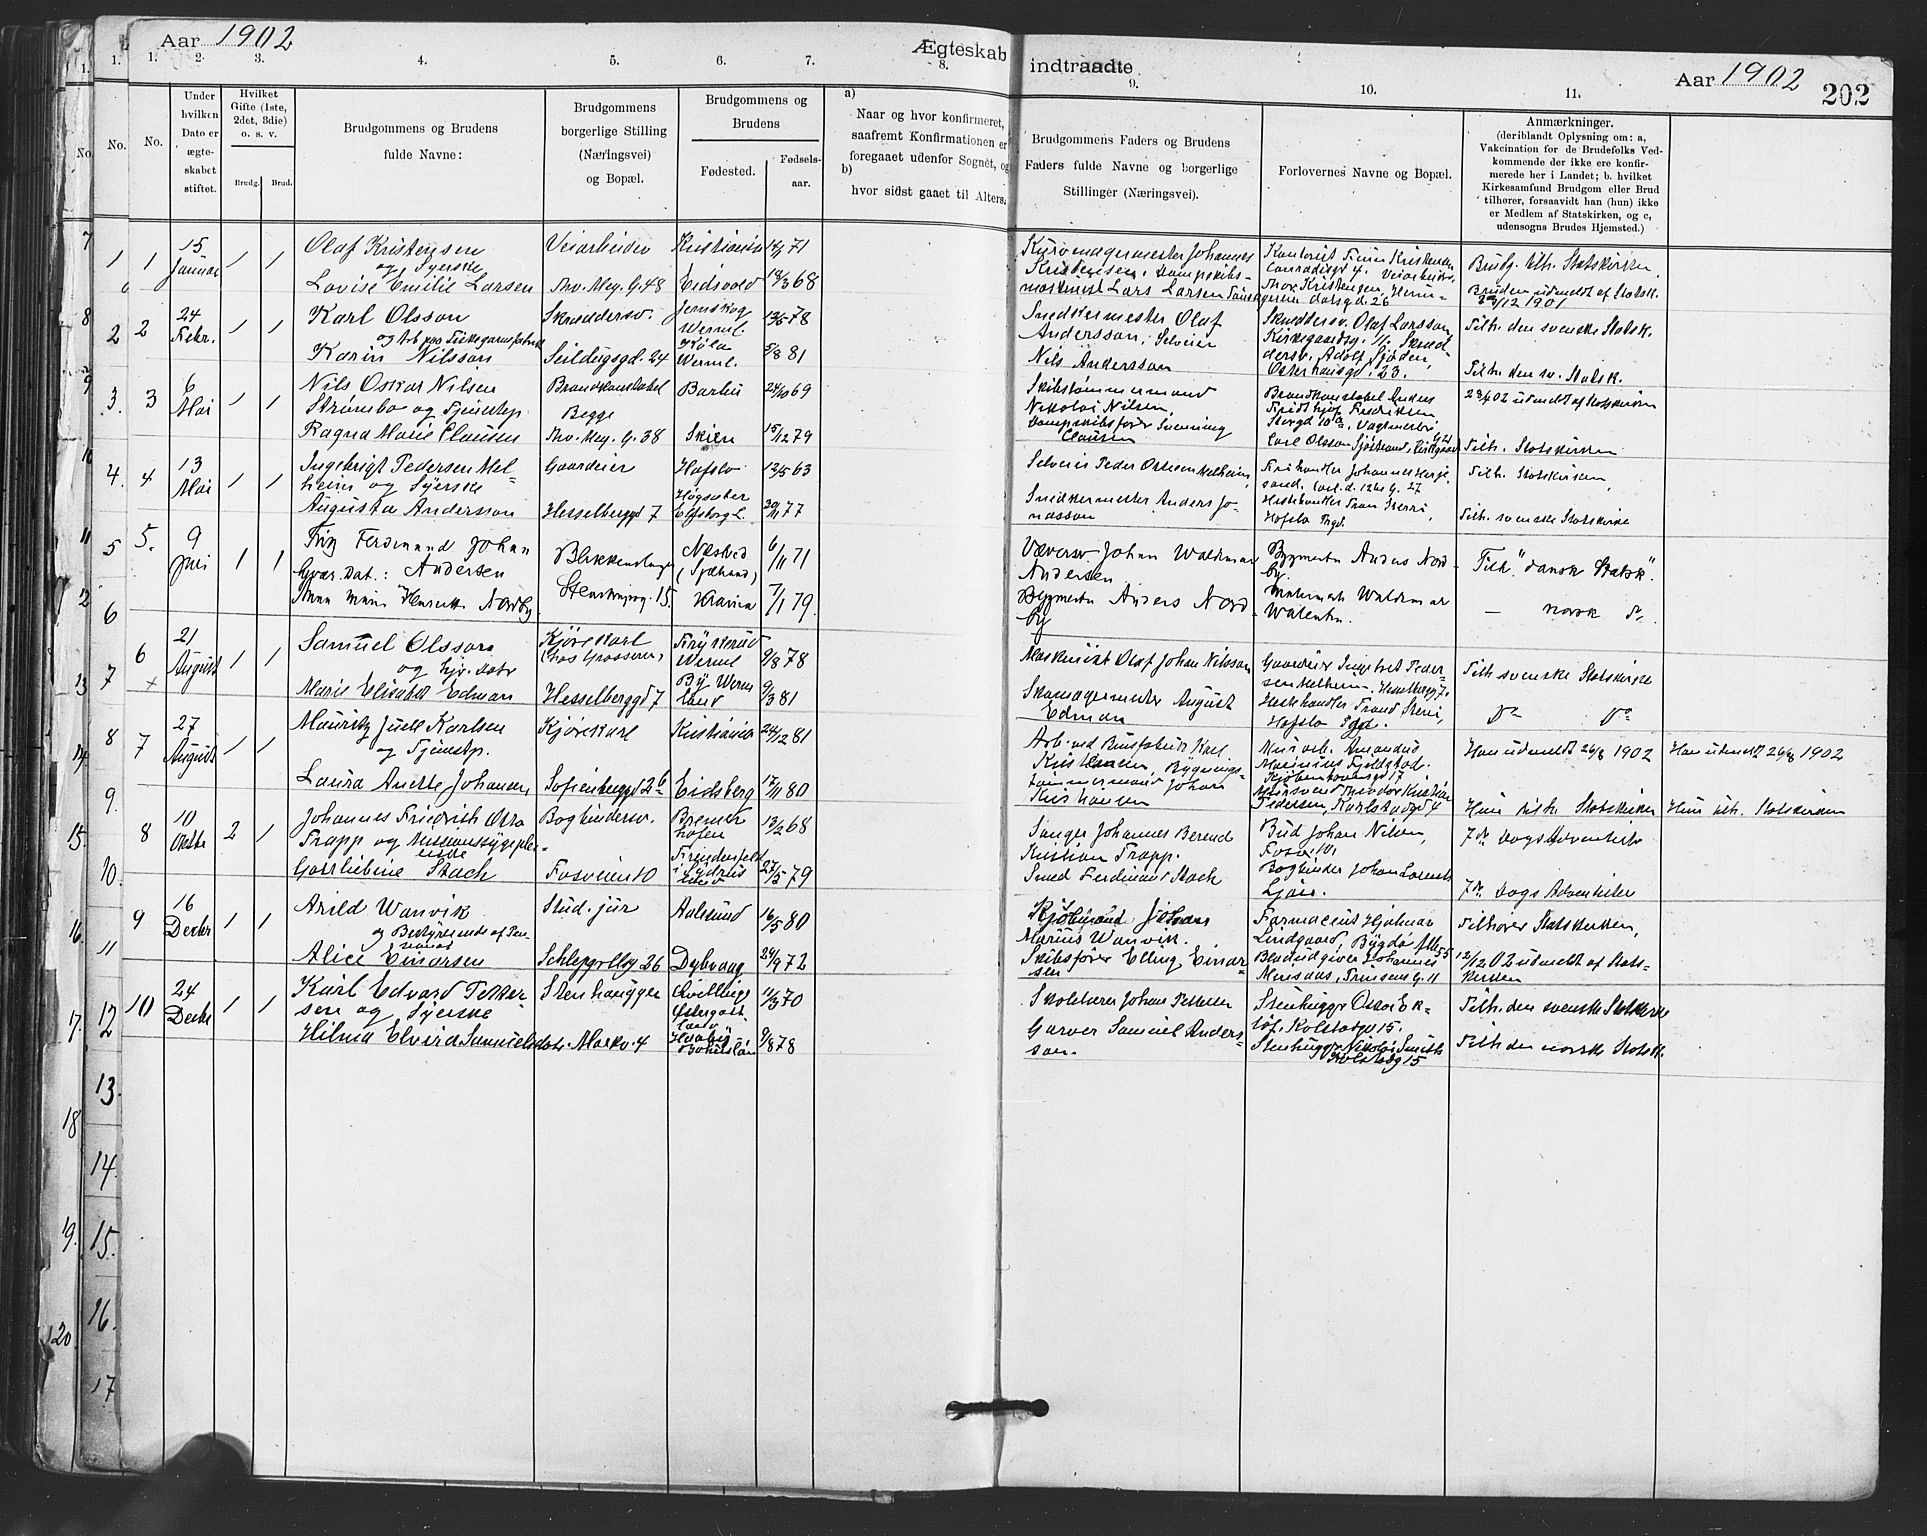 Aar 1902
Ægteskab indtraadte
Aar 1902
202
1. 1. 2. 3. 4. 5. 6. 7. 8. 9. 10. 11.
No.
No.
No.
Under hvilken Dato er ægteskabet stiftet.
Hvilket Gifte (1ste, 2det, 3die) o. s. v.
Brudg. Brud.
Brudgommens og Brudens fulde Navne:
Brudgommens borgerlige Stilling (Næringsvei) og Bopæl.
Brudgommens og Brudens
Fødested.
Fødsels-aar.
a) Naar og hvor konfirmeret, saafremt Konfirmationen er foregaaet udenfor Sognet, og
b) hvor sidst gaaet til Alters.
Brudgommens Faders og Brudens Faders fulde Navne og borgerlige Stillinger (Næringsvei).
Forlovernes Navne og Bopæl.
Anmærkninger.
(deriblandt Oplysning om: a, Vakcination for de Brudefolks Vedkommende der ikke ere konfirmerede her i Landet; b. hvilket Kirkesamfund Brudgom eller Brud tilhører, forsaavidt han (hun) ikke er Medlem af Statskirken, og c, udensogns Brudes Hjemsted.)
1 15 Januar 1 1
Olaf Kristensen
og Syerske
Lovise Emilie Larsen
Veiarbeider
Thv. Mey. G. 48
Kristiania
Eidsvold
71
68
Johannes
Kristensen, Dampskibs-
maskinist Lars Larsen
Kontorist Finn Kristensen
Conradisgd 4. Veiarbeider
Thor Kristensen,
dalsgd. 26
Brudg. tilh. Statskirken,
Bruden udmeldt af Statsk.
/12 1901
2 24 Febr. 1 1
Karl Olsson
og Arb. paa
Karin Nilsson
Skræddersv.
Seildugsgd. 24
Jernskog
Werml.
Köla
Werml.
13/6 78
5/8 81
Snedkermester Olaf
Andersson, Selveier
Nils Andersson
Skræddersv. Olaf Larsson
Kirkegaardsg. 11. Skræd-
dersv. Adolf Sjöden,
Osterhausgd. 23.
Tilh. den svenske Statsk.
Tilh. den sv. Statsk.
3 6 Mai 1 1
Nils Oskar Nilsen
Strømbo og Tjenestep.
Ragna Marie Clausen
Brandkonstabel
Begge
Thv. Mey. G. 38
Barbu
Skien
24/10 69
15/12 79
Skibstømmermand
Nikolai Nilsen,
Dampskibsfører Svenning
Clausen
Brandkonstabel Anders
Fridthjof Fredriksen
Storgd 10 a, Vagtmester
Carl Olsson Sjöstrand,
/4 02 udmeldt af Statskirken
Tilh. Statskirken
4 13 Mai 1 1
Ingebrigt Pedersen Mel-
heim og Syerske
Augusta Andersson
Gaardeier
Hesselberggd 7
Hafslo
Högsäter
Elfsborg L.
13/5 63
77
Selveier Peder Melheim,
Snedkermester Anders Jo-
nasson
Johannes
G. 27
Hestehandler
Hafslo
Tilh. Statskirken,
Tilh. svenske Statskirke
5. 9 Juni 1 1
Fritz Ferdinand Johan
Andersen
Anna Maria Henriette Nordby
Blikkenslager
Stenstrupsg. 15.
Næstved
(Sjælland)
6/11 71
7/1 79.
Væversv Johan Waldemar
Andersen
Bygmester Anders Nord-
by
Bygmester Anders Nord-
by.
Waldemar
Walentin.
Tilh. "dansk Statsk".
— norsk
6 21 August 1 1
Samuel Olsson
og
Marie Elisabet Edman
Kjørekarl
(hos Grosserer)
Hesselberggd 7
Frykerud
Werml
By Werm
land
9/8 78
9/3 81
Maskinist Olaf Johan Nilsson
Skomagermester August
Edman
Gaardeier Ingebret Peder-
sen Melheim, Hesselbergg 7.
Hestehandler
Hafslo
Tilh svenske Statskirke
Do Do
7 27 August 1 1
Mauritz Juell Karlsen
og Tjenestep.
Laura Anette Johansen
Kjørekarl
Sofienberggd 26
Kristiania
Eidsberg
24/12 81
17/11 80
Arb. ved Karl
Kristiansen, Bygnings-
tømmermand Johan
Kristiansen
Murarb. Amandus
Marinius Fjeldstad.
Kjøbenhavnsgd 17
Theodor Kristian
Pedersen, Karlstadgd 4
Han udmeldt 26/8 1902
Hun tilh. Statskirken
Han udmeldt 26/8 1902
Hun tilh. Statskirken
8 10 Oktbr 2 1
Johannes Friedrich Otto
Trapp og Missionssygeplei-
erske
Gottliebine Stach
Bogbindersv.
Fosveien 10
Bremer
hafen
Friedenfeldt
13/2 68
27/5 79
Sanger Johannes Berend
Kristian Trapp.
Smed Ferdinand Stach
Bud Johan Nilsen,
Fosv. 10,
Bogbinder Johan
Ljan.
7de Dags Adventister
7de Dags Adventister
9 16 Decbr 1 1
Arild Wanvik
og Bestyrerinde af Pen-
sionat
Alice Einarsen
Stud. jur
Schleppegrellsg 26
Aalesund
Dybvaag
16/5 80
24/9 72
Kjøbmand Johan
Marius Wanvik.
Skibsfører Elling Einar-
sen
Farmaceut Hjalmar
Lindgaard, Bygdø Allé 55
Bladudgiver Johannes
G. 11
Tilhører Statskirken,
12/12 02 udmeldt af Stats-
kirken
10 24 Decbr 1 1
Karl Edvard Petter
sen og Syerske
Hilma Elvira Samuelsdotr.
Stenhugger
Markv. 4
Qvillinge
Östergöt
land
Bohuslän
11/3 70
9/8 78
Skolelærer Johan Pettersen
Garver Samuel Anders-
son.
Stenhugger Oskar Ek-
löf, Kolstadgd 15.
Stenhugger Nikolai Smith
Kolstadg 15
Tilh. den svenske Statskirke
Tilh. den norske Statsk.
7
8
9
10
11
12
13
14
15.
16.
17.
18
19.
20
1
2
3.
4.
5
6
7
8
9.
10.
11
12
13.
14.
15.
16.
17